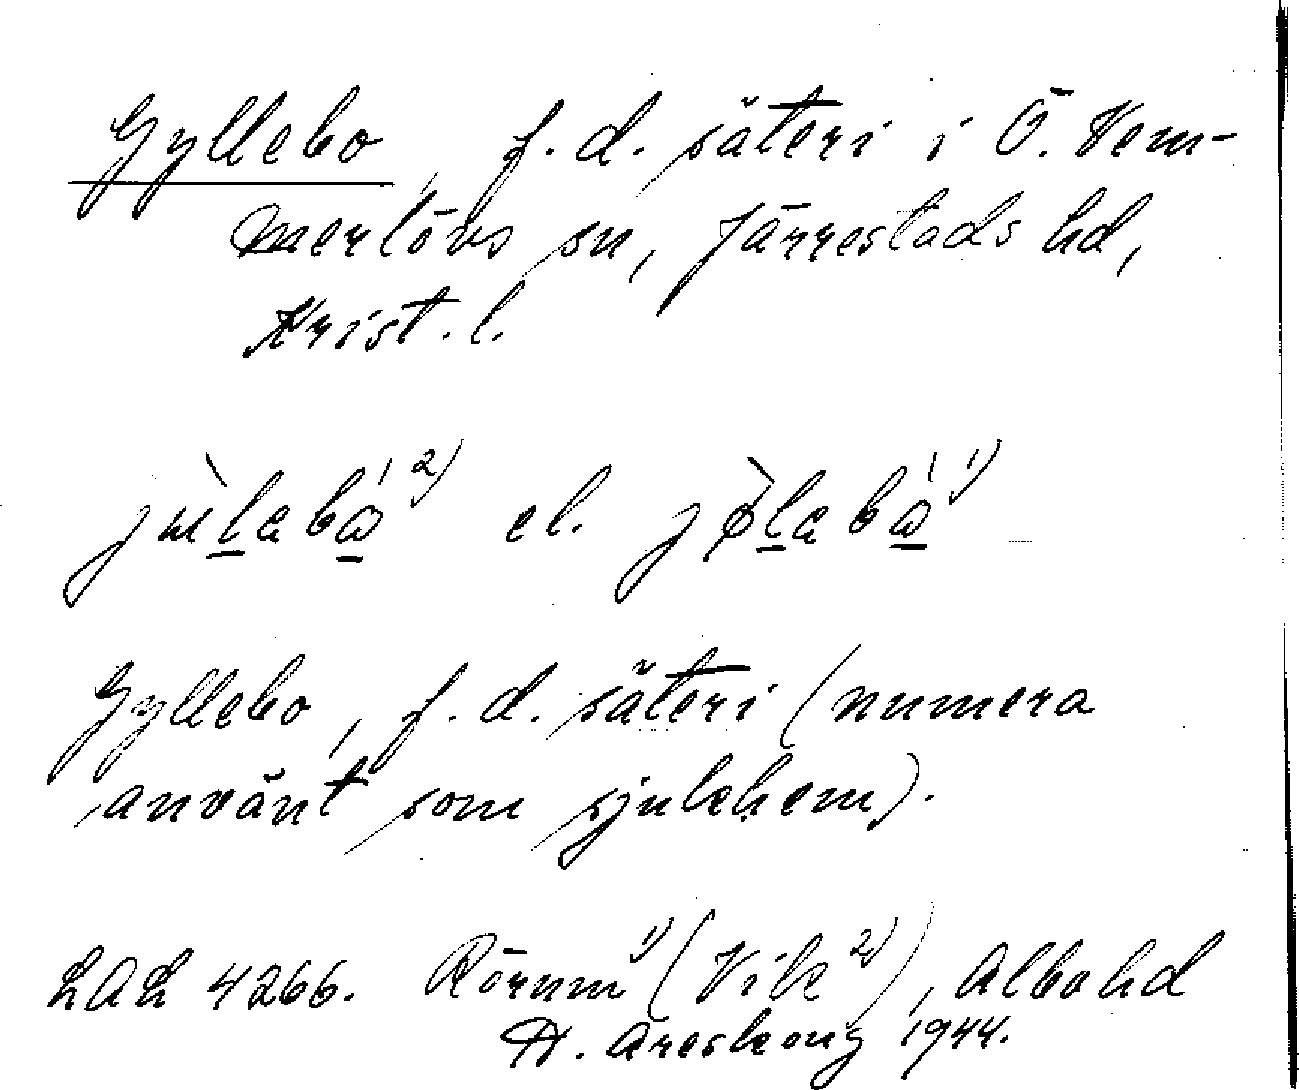 Gyllebo, f.d. säteri i Ö. Vem-
merlövs sn, Järrestads hd,
Krist. l.
jɯ̀labá²⁾ el. jø̀labá¹⁾
Gyllebo, f.d. säteri (numera
använt som sjukhem).
LAL 4266. Rörum¹⁾ (Vik²⁾), Albo hd
H. Areskoug 1944.